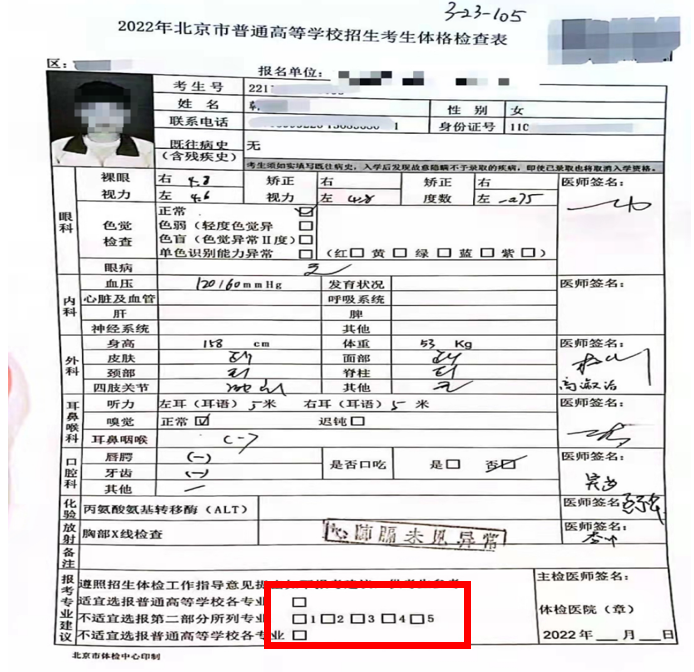 3-23-105
2022年北京市普通高等学校招生考生体格检查表
区:
报名单位:
考生号 221
姓名 性别 女
联系电话 身份证号 11C
既往病史(含残疾史) 无
考生须如实填写既往病史,入学后发现故意隐瞒不予录取的疾病,即使已录取也将取消入学资格。
眼科
裸眼视力 右 4.8 矫正视力 右 矫正度数 右 医师签名:
左 4.6 左 4.8 左 -0.75
色觉检查
正常☑
色弱(轻度色觉异□
色盲(色觉异常II度)□
单色识别能力异常□ (红□ 黄□ 绿□ 蓝□ 紫□)
眼病 无
内科
血压 120/60mmHg 发育状况 医师签名:
心脏及血管 呼吸系统
肝 脾
神经系统 其他
外科
身高 158 cm 体重 53 Kg 医师签名:
皮肤 面部
颈部 脊柱
四肢关节 其他 无
耳鼻喉科
听力 左耳(耳语)5米 右耳(耳语)5米 医师签名:
嗅觉 正常☑ 迟钝□
耳鼻咽喉 (-)
口腔科
唇腭 (-) 是否口吃 是□ 否☑ 医师签名:
牙齿 (-)
其他
化验 丙氨酸氨基转移酶(ALT) 医师签名:
放射 胸部X线检查 心肺膈未见异常 医师签名:
备注
报考专业建议
遵照招生体检工作指导意见提
适宜选报普通高等学校各专业 □
不适宜选报第二部分所列专业 □1□2□3□4□5
不适宜选报普通高等学校各专业 □
主检医师签名:
体检医院(章)
2022年__月__日
北京市体检中心印制